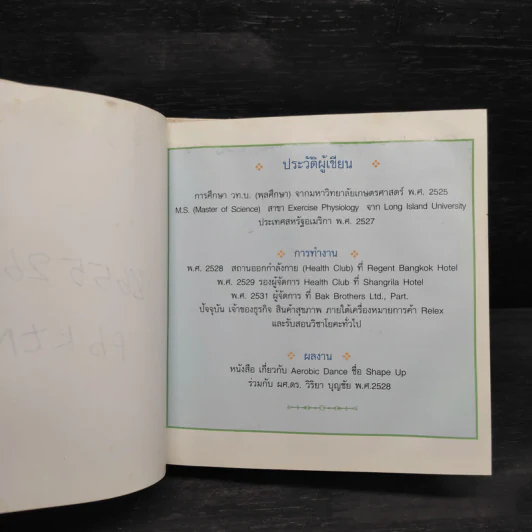 ประวัติผู้เขียน
การศึกษา วท.บ. (พลศึกษา) จากมหาวิทยาลัยเกษตรศาสตร์ พ.ศ. 2525
M.S. (Master of Science) สาขา Exercise Physiology จาก Long Island University
ประเทศสหรัฐอเมริกา พ.ศ. 2527
การทำงาน
พ.ศ. 2528 สถานออกกำลังกาย (Health Club) ที่ Regent Bangkok Hotel
พ.ศ. 2529 รองผู้จัดการ Health Club ที่ Shangrila Hotel
พ.ศ. 2531 ผู้จัดการ ที่ Bak Brothers Ltd., Part.
ปัจจุบัน เจ้าของธุรกิจ สินค้าสุขภาพ ภายใต้เครื่องหมายการค้า Relex
และรับสอนวิชาโยคะทั่วไป
ผลงาน
หนังสือ เกี่ยวกับ Aerobic Dance ชื่อ Shape Up
ร่วมกับ ผศ.ดร. วิริยา บุญชัย พ.ศ.2528